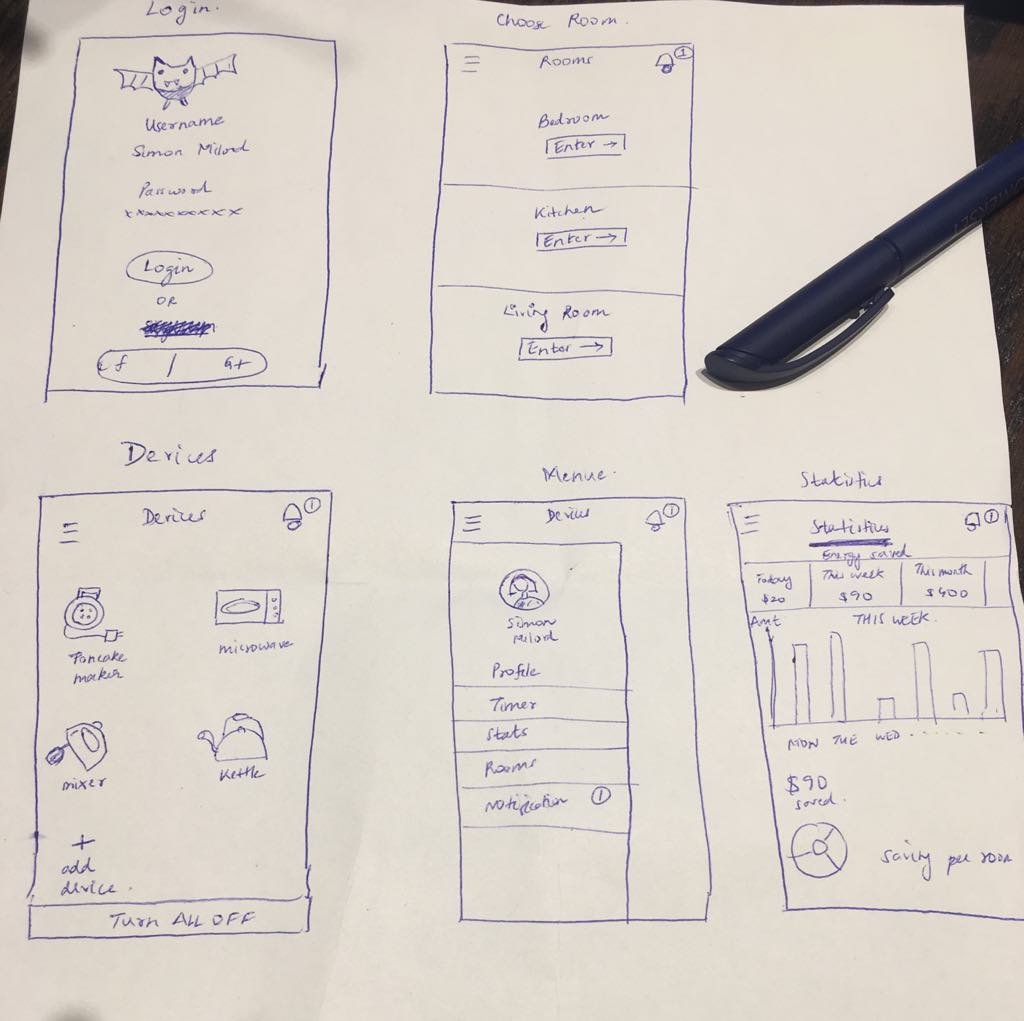 Login.
Username
Simon Milord
Password
xxxxxxxxxx
Login
OR
f / G+
Choose Room.
Rooms
1
Bedroom
Enter →
Kitchen
Enter →
Living Room
Enter →
Devices
Devices
1
Pancake
maker
microwave
mixer
Kettle
+
add
device.
Turn ALL OFF
Menue.
Devices
1
Simon
Milord
Profile
Timer
Stats
Rooms
Notification 1
Statistics
Statistics
1
Energy saved
Today
$20
This week
$90
This month
$400
Amt
THIS WEEK.
MON TUE WED . . . . . .
$90
saved.
Saving per room